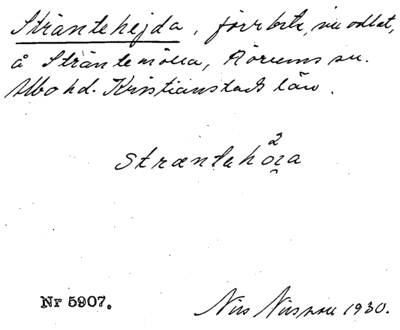 Sträntehejda, förr bete, nu odlat,
å Sträntemölla, Rörums sn.
Albo hd. Kristianstads län.
2
stræntahöza
Nr 5907.
Nils Nilsson 1930.